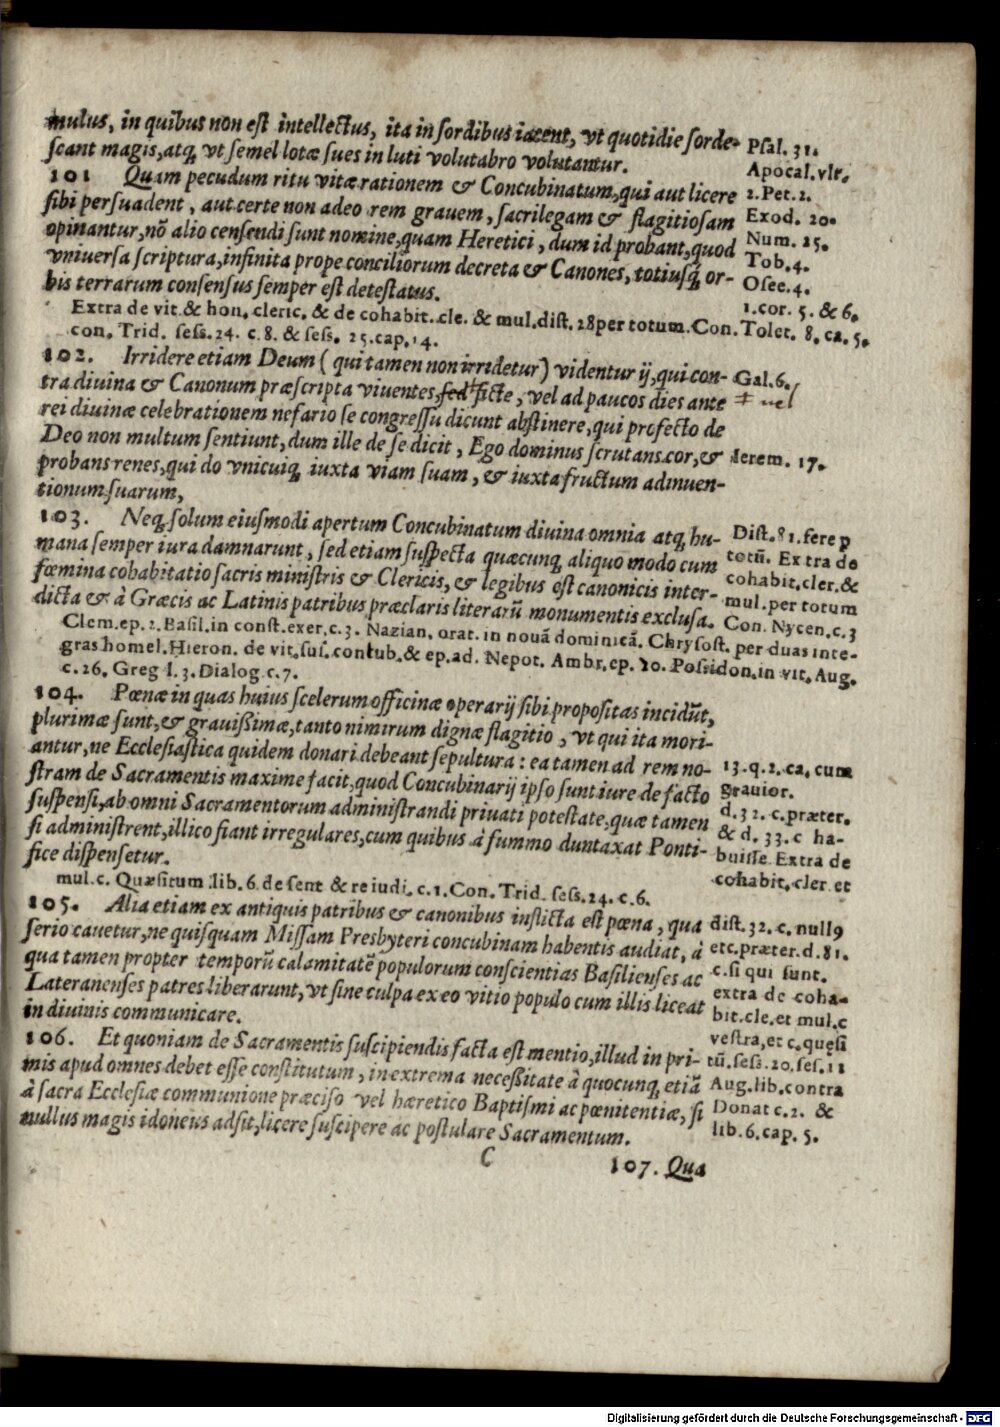 mulus, in quibus non est intellectus, ita in sordibus iacent, vt quotidie sorde-
scant magis, atq, vt semel lotæ sues in luti volutabro volutantur.
Psal. 31.
Apocal. vlt.
101 Quam pecudum ritu vitæ rationem & Concubinatum, qui aut licere
sibi persuadent, aut certe non adeo rem grauem, sacrilegam & flagitiosam
opinantur, nõ alio censendi sunt nomine, quam Heretici, dum id probant, quod
vniuersa scriptura, infinita prope conciliorum decreta & Canones, totiusq, or-
bis terrarum consensus semper est detestatus.
2. Pet. 2.
Exod. 20.
Num. 25.
Tob. 4.
Osee. 4.
1. cor. 5. & 6.
Extra de vit. & hon. cleric. & de cohabit. cle. & mul. dist. 28 per totum. Con. Tolet. 8. ca. 5.
con. Trid. sess. 24. c. 8. & sess. 25. cap. 14.
102. Irridere etiam Deum ( qui tamen non irridetur ) videntur ij, qui con-
tra diuina & Canonum præscripta viuentes, sed ficte, vel ad paucos dies ante
rei diuinæ celebrationem nefario se congressu dicunt abstinere, qui profecto de
Deo non multum sentiunt, dum ille de se dicit, Ego dominus scrutans cor, &
probans renes, qui do vnicuiq, iuxta viam suam, & iuxta fructum adinuen-
tionum suarum,
Gal. 6.
‡ vel
Ierem. 17.
103. Neq, solum eiusmodi apertum Concubinatum diuina omnia atq, hu-
mana semper iura damnarunt, sed etiam suspecta quæcunq, aliquo modo cum
fœmina cohabitatio sacris ministris & Clericis, & legibus est canonicis inter-
dicta & à Græcis ac Latinis patribus præclaris literarũ monumentis exclusa.
Dist. 81. fere p
totũ. Extra de
cohabit. cler. &
mul. per totum
Con. Nycen. c. 3
Clem. ep. 2. Basil. in const. exer. c. 3. Nazian. orat. in nouã dominicã. Chrysost. per duas inte-
gras homel. Hieron. de vit. sus. contub. & ep. ad. Nepot. Ambr. ep. 10. Possidon. in vit. Aug.
c. 26. Greg l. 3. Dialog c. 7.
104. Pœnæ in quas huius scelerum officinæ operarij sibi propositas incidũt,
plurimæ sunt, & grauißimæ, tanto nimirum dignæ flagitio, vt qui ita mori-
antur, ne Ecclesiastica quidem donari debeant sepultura: ea tamen ad rem no-
stram de Sacramentis maxime facit, quod Concubinarij ipso sunt iure de facto
suspensi, ab omni Sacramentorum administrandi priuati potestate, quæ tamen
si administrent, illico fiant irregulares, cum quibus à summo duntaxat Ponti-
fice dispensetur.
13. q. 2. ca. cum
grauior.
d. 32. c. præter.
& d. 33. c ha-
buisse. Extra de
cohabit. cler et
mul. c. Quæsitum. lib. 6 de sent & re iudi. c. 1. Con. Trid. sess. 24. c. 6.
105. Alia etiam ex antiquis patribus & canonibus inflicta est pœna, qua
serio cauetur, ne quisquam Missam Presbyteri concubinam habentis audiat, à
qua tamen propter temporũ calamitatẽ populorum conscientias Basilienses ac
Lateranenses patres liberarunt, vt sine culpa ex eo vitio populo cum illis liceat
in diuinis communicare.
dist. 32. c. null9
etc. præter. d. 81.
c. si qui sunt.
extra de coha-
bit. cle. et mul. c
vestra, et c. quęsi
106. Et quoniam de Sacramentis suscipiendis facta est mentio, illud in pri-
mis apud omnes debet esse constitutum, in extrema neceßitate à quocunq, etiã
à sacra Ecclesiæ communione præciso vel hæretico Baptismi ac pœnitentiæ, si
nullus magis idoneus adsit, licere suscipere ac postulare Sacramentum.
tũ. sess. 20. ses. 11
Aug. lib. contra
Donat c. 2. &
lib. 6. cap. 5.
C
107. Qua
Digitalisierung gefördert durch die Deutsche Forschungsgemeinschaft - DFG